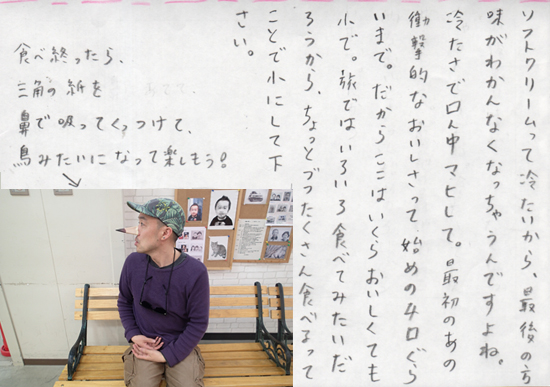 ソフトクリームって冷たいから、最後の方
味がわかんなくなっちゃうんですよね。
冷たさで口ん中マヒして。最初のあの
衝撃的なおいしさって、始めの4口ぐら
いまで。だからここはいくらおいしくても
小で。旅ではいろいろ食べてみたいだ
ろうから、ちょっとづつたくさん食べるって
ことで小にして下
さい。
食べ終ったら、
三角の紙を
鼻で吸ってくっつけて、
鳥みたいになって楽しもう!